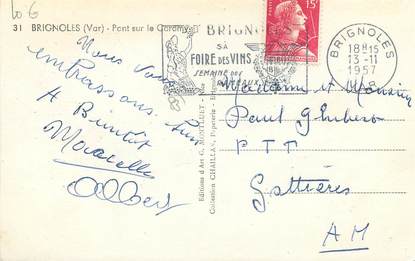 Lo G
31 BRIGNOLES (Var) - Pont sur le Caramy
BRIGNOLES
SA
FOIRE DES VINS
SEMAINE DES
15F
BRIGNOLES
18H15
13-11
1957
VAR
Nous vous
embrassons.
A Bientôt
Marcelle
Albert
Editions d'Art G. MONTLUET
Collection CHAILLAN, Papeterie
Madame et Monsieur
Paul
PTT
Gattières
AM